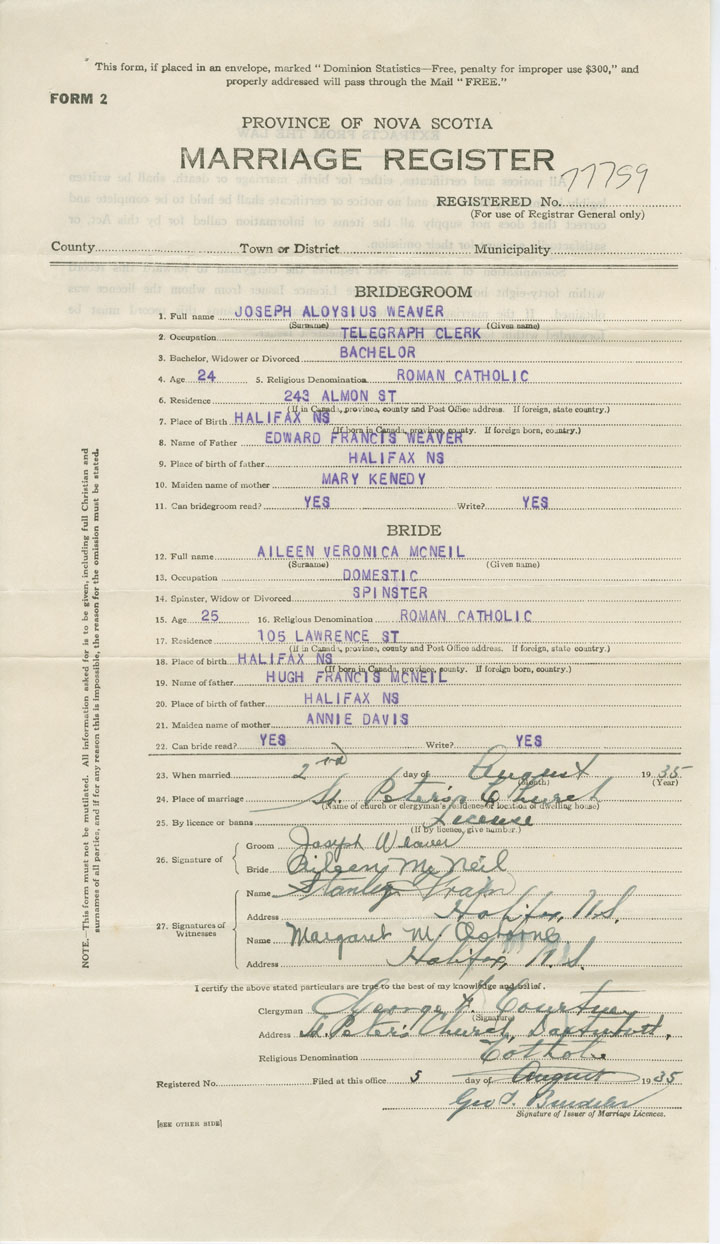 This form, if placed in an envelope, marked “Dominion Statistics—Free, penalty for improper use $300,” and
properly addressed will pass through the Mail “FREE.”
FORM 2
PROVINCE OF NOVA SCOTIA
MARRIAGE REGISTER
REGISTERED No. 77759
(For use of Registrar General only)
County Town or District Municipality
BRIDEGROOM
1. Full name JOSEPH ALOYSIUS WEAVER
(Surname) (Given name)
2. Occupation TELEGRAPH CLERK
3. Bachelor, Widower or Divorced BACHELOR
4. Age 24 5. Religious Denomination ROMAN CATHOLIC
6. Residence 243 ALMON ST
(If in Canada, province, county and Post Office address. If foreign, state country.)
7. Place of Birth HALIFAX NS
(If born in Canada, province, county. If foreign born, country.)
8. Name of Father EDWARD FRANCIS WEAVER
9. Place of birth of father HALIFAX NS
10. Maiden name of mother MARY KENEDY
11. Can bridegroom read? YES Write? YES
BRIDE
12. Full name AILEEN VERONICA MCNEIL
(Surname) (Given name)
13. Occupation DOMESTIC
14. Spinster, Widow or Divorced SPINSTER
15. Age 25 16. Religious Denomination ROMAN CATHOLIC
17. Residence 105 LAWRENCE ST
(If in Canada, province, county and Post Office address. If foreign, state country.)
18. Place of birth HALIFAX NS
(If born in Canada, province, county. If foreign born, country.)
19. Name of father HUGH FRANCIS MCNEIL
20. Place of birth of father HALIFAX NS
21. Maiden name of mother ANNIE DAVIS
22. Can bride read? YES Write? YES
23. When married 2nd day of August 1935
(Month) (Year)
24. Place of marriage St. Peter's Church
(Name of church or clergyman's residence or location of dwelling house)
25. By licence or banns License
(If by licence, give number.)
26. Signature of
Groom Joseph Weaver
Bride Aileen McNeil
27. Signatures of Witnesses
Name Stanley
Address Halifax, N.S.
Name Margaret M. Osborne
Address Halifax, N.S.
I certify the above stated particulars are true to the best of my knowledge and belief.
Clergyman George F. Courtney
(Signature)
Address St. Peter's Church, Dartmouth,
Religious Denomination Catholic
Registered No. Filed at this office 5 day of August 1935
Geo
Signature of Issuer of Marriage Licences.
[SEE OTHER SIDE]
NOTE.—This form must not be mutilated. All information asked for is to be given, including full Christian and
surnames of all parties, and if for any reason this is impossible, the reason for the omission must be stated.